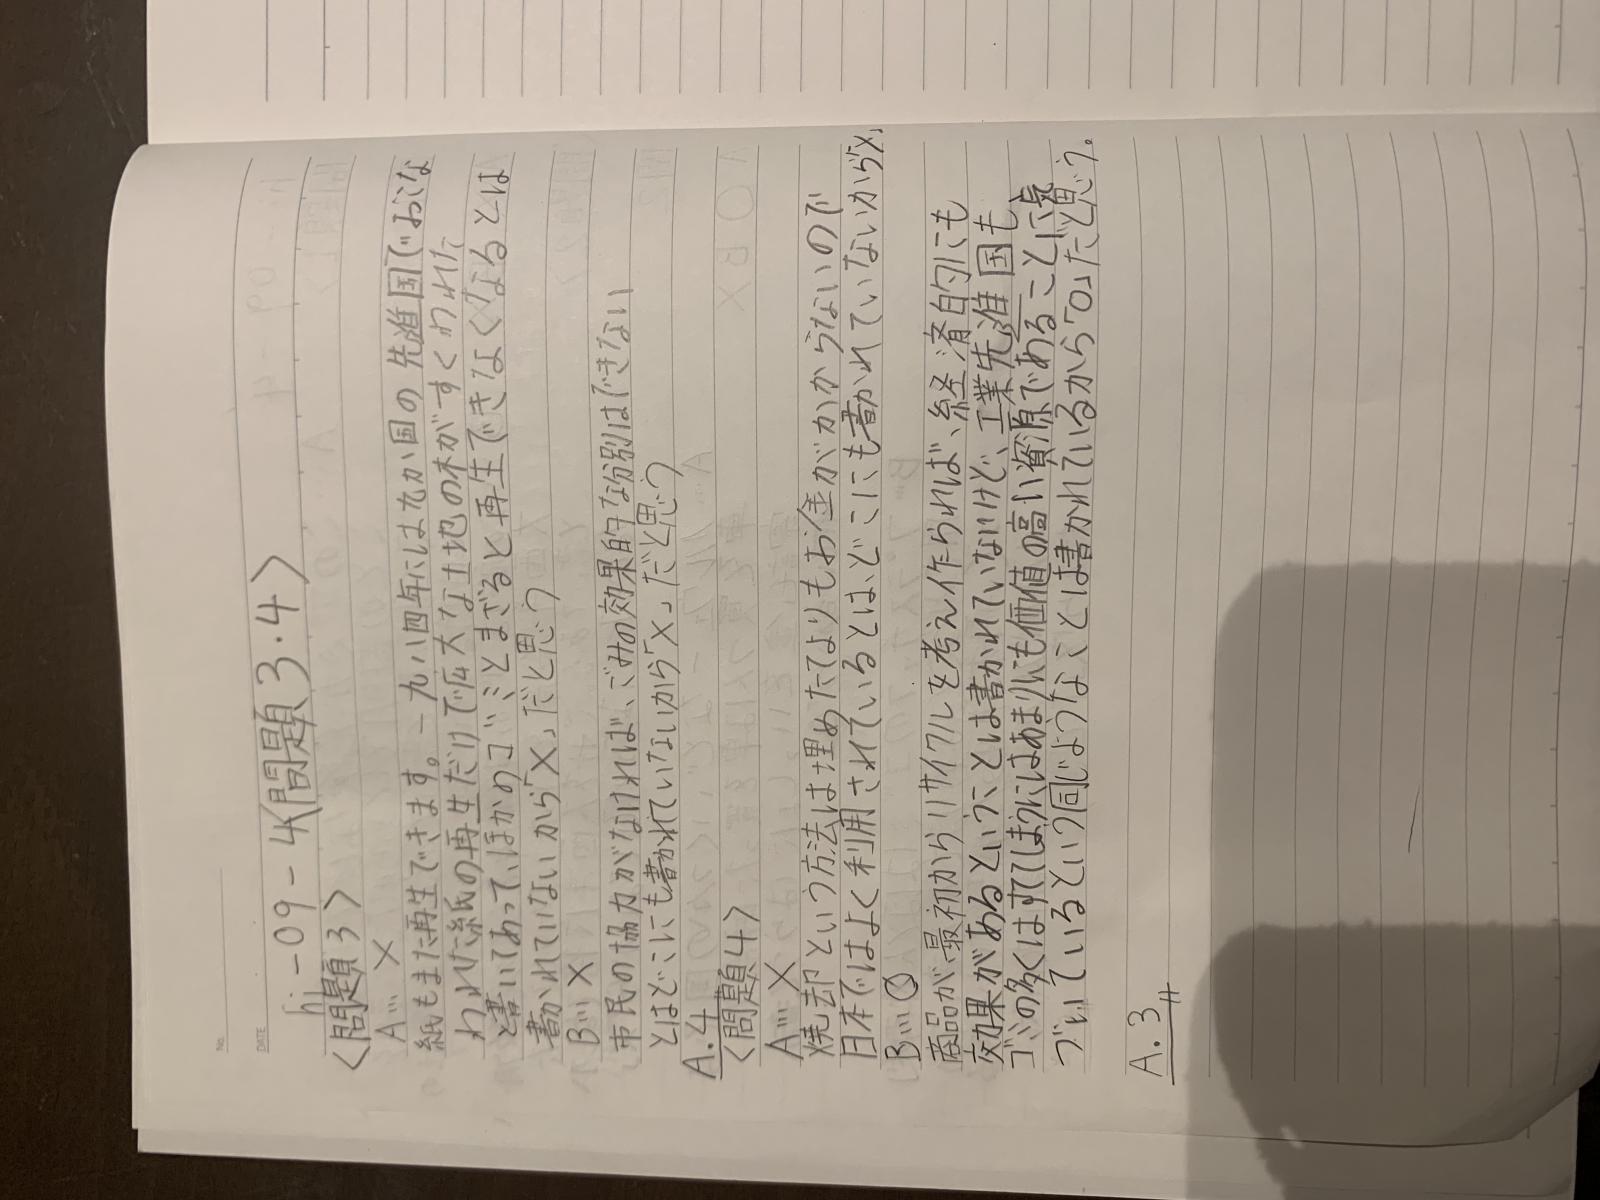 No.
DATE
hi-09-4〈問題3・4〉
〈問題3〉
A… ×
紙もまた再生できます。一九八四年には九か国の先進国でおこな
われた紙の再生だけで広大な土地の木がすくわれた
と書いてあって、ほかのゴミとまざると再生できなくなるとは
書かれていないから「×」だと思う
B… ×
市民の協力がなければ、ごみの効果的な分別はできない
とはどこにも書かれていないから「×」だと思う
A.4
〈問題4〉
A… ×
焼却という方法は埋めたてよりもお金がかからないので
日本ではよく利用されているとはどこにも書かれていないから「×」
B… ○
商品が最初からリサイクルを考え作られれば、経済的にも
効果があるということは書かれていないけど、工業先進国も
ゴミの多くはすててしまうにはあまりにも価値の高い資源であることに気
づいているという同じようなことは書かれているから「○」だと思う。
A.3